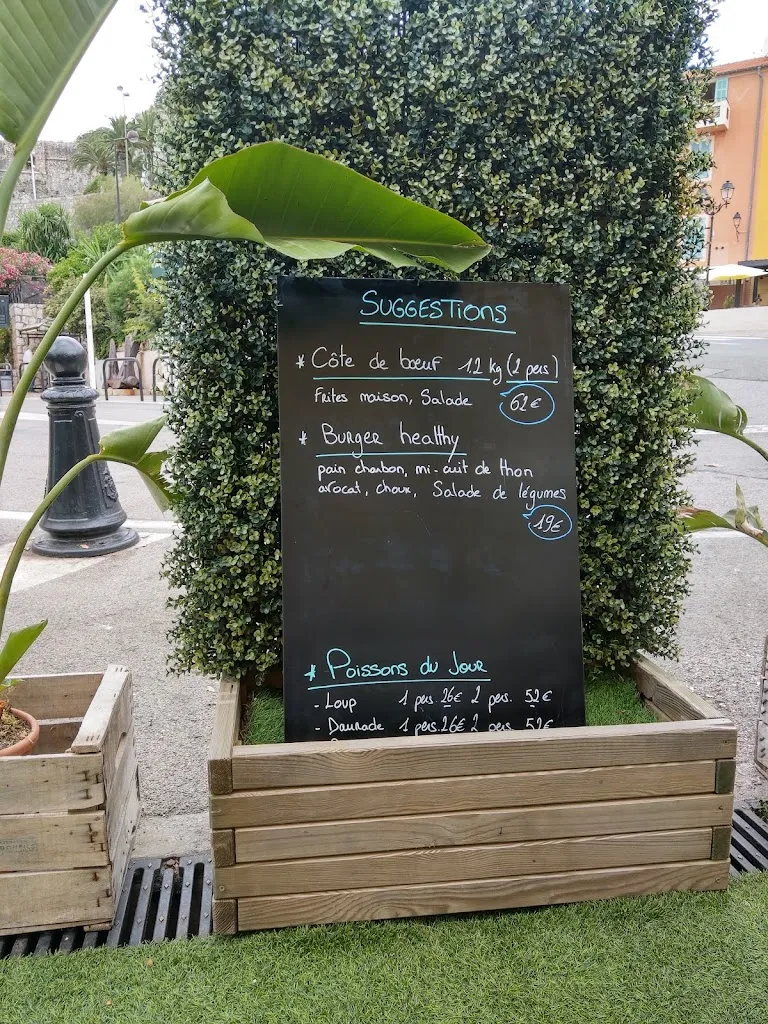 SUGGESTIONS
* Côte de bœuf 1,2 kg (2 pers)
Frites maison, Salade 62€
* Burger healthy
pain charbon, mi-cuit de thon
avocat, choux, Salade de légumes
19€
* Poissons du Jour
- Loup 1 pers. 26€ 2 pers. 52€
- Daurade 1 pers. 26€ 2 pers. 52€